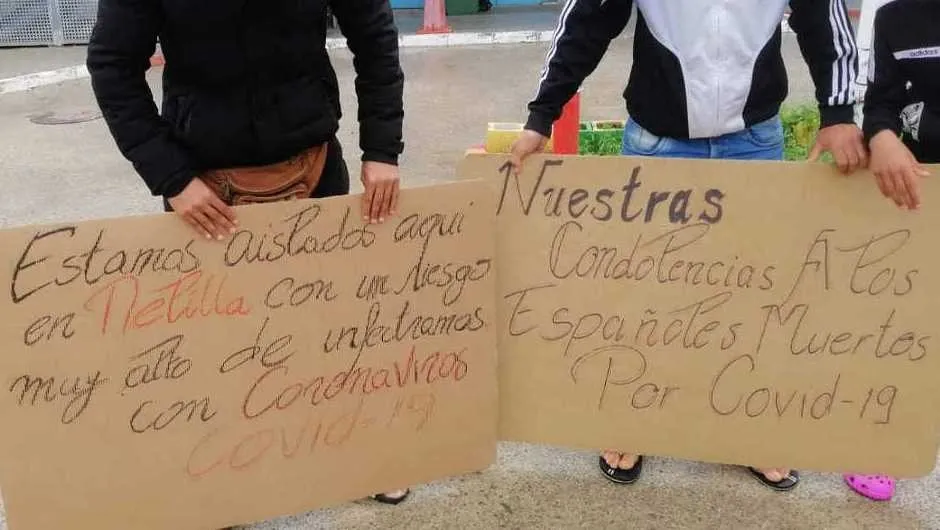 Estamos aislados aqui
en Melilla con un riesgo
muy alto de infectramos
con CoronaVirus
Covid-19
Nuestras
Condolencias A los
Españoles Muertos
Por Covid-19
adidas